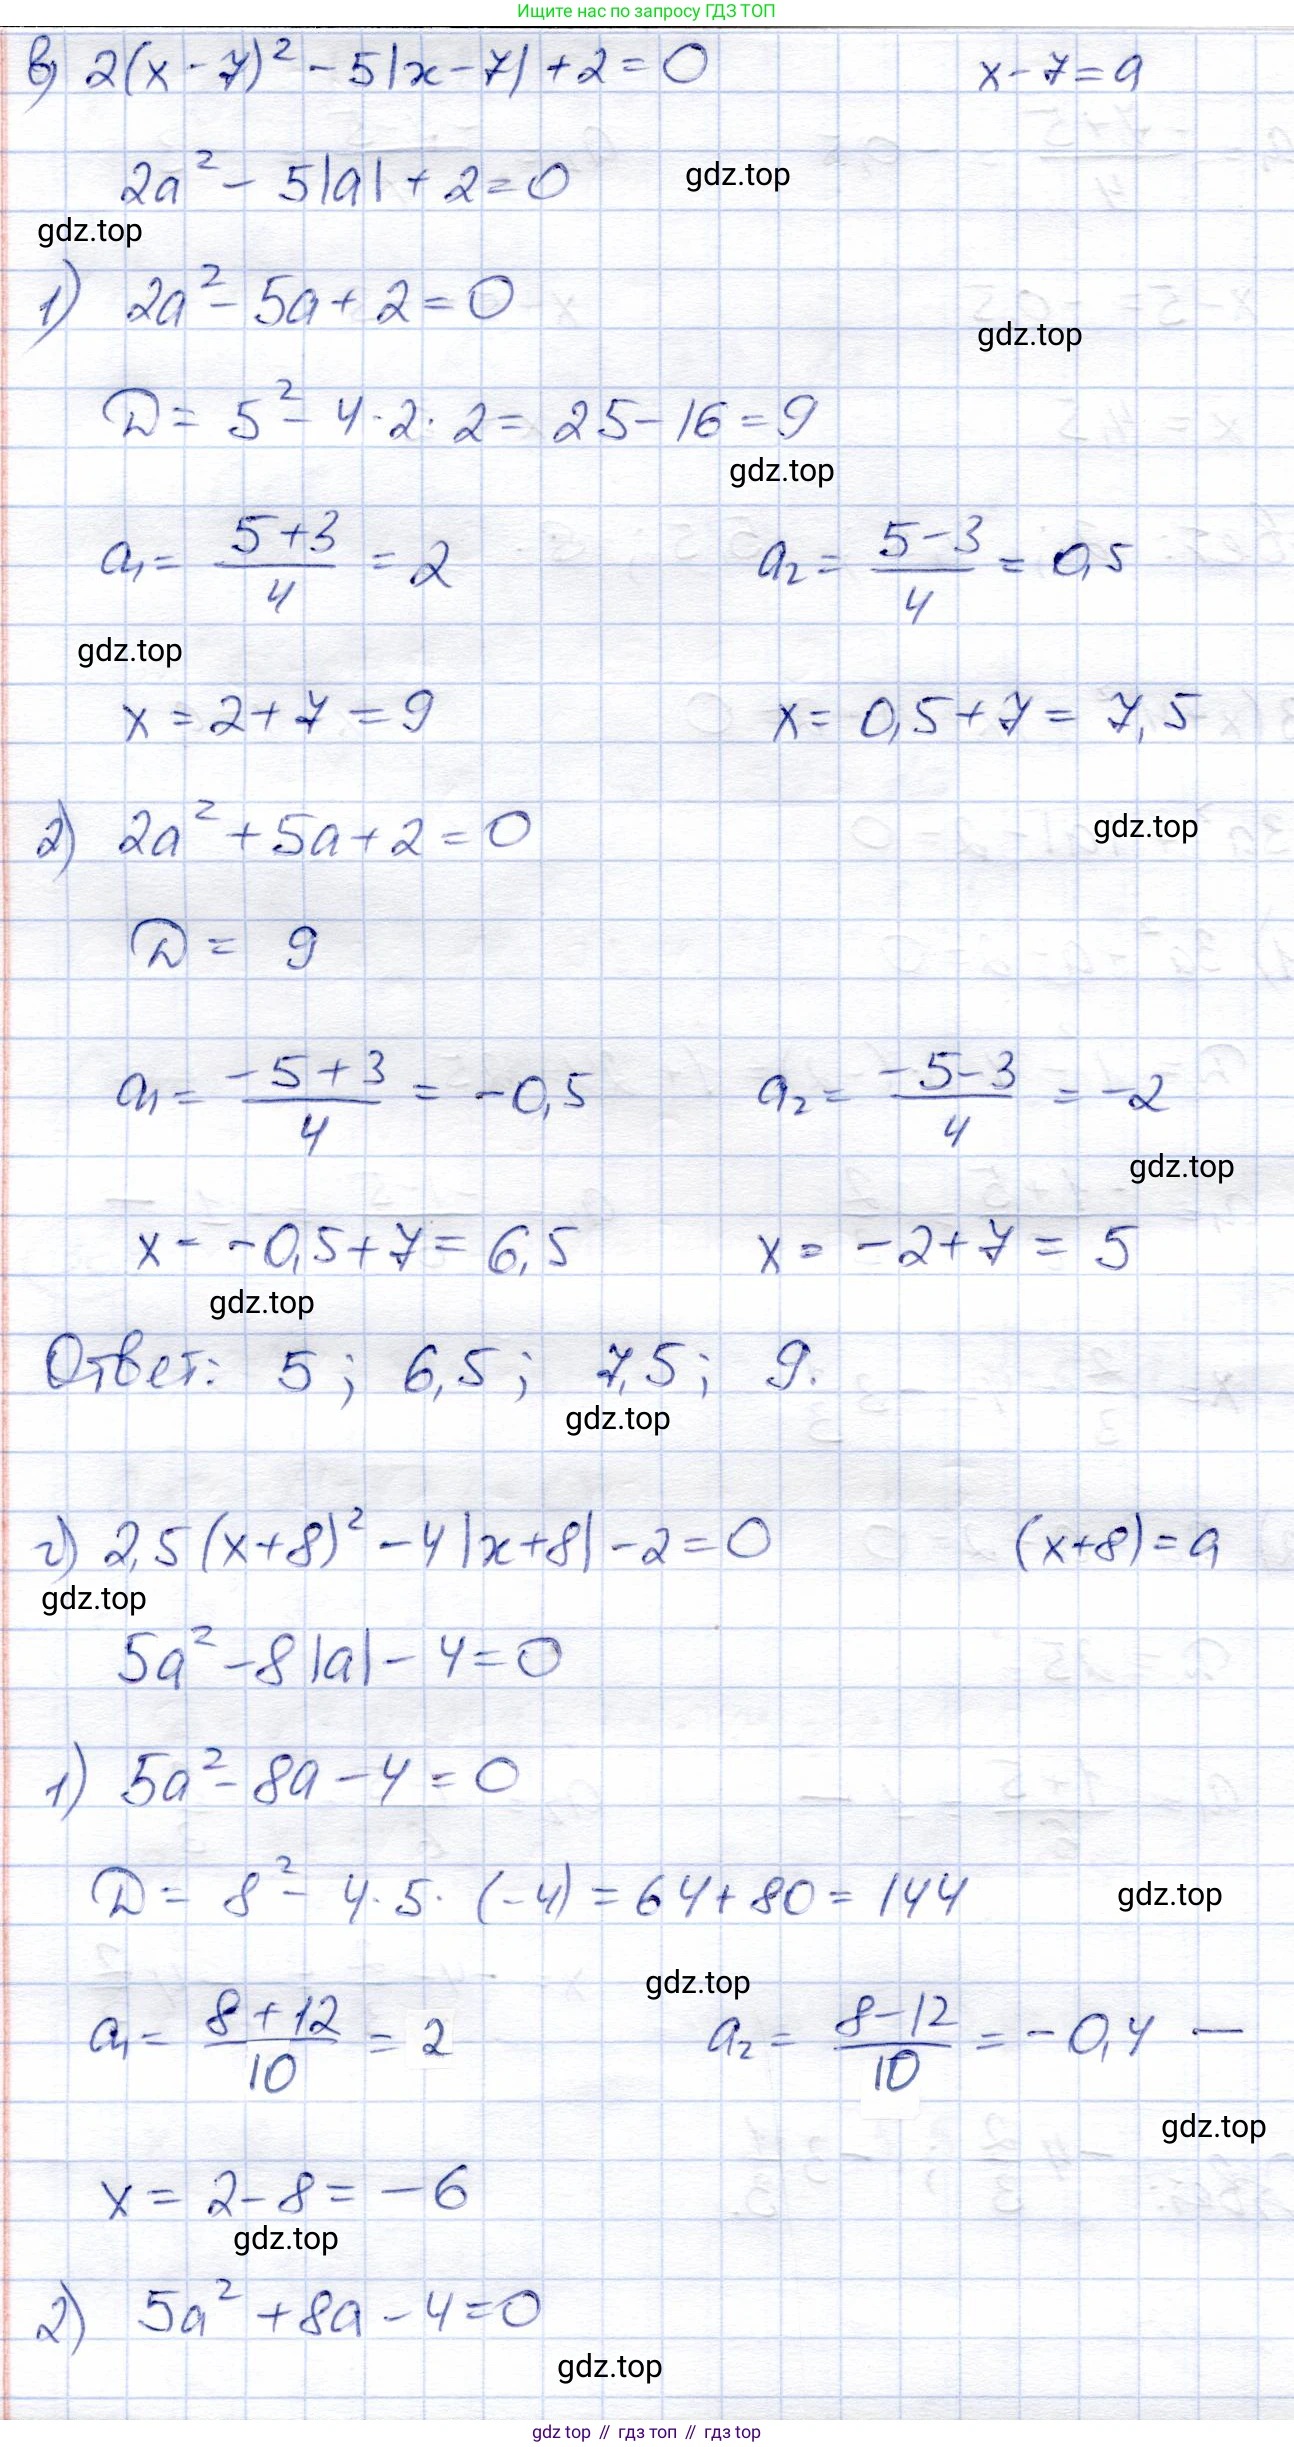 Ищите нас по запросу ГДЗ ТОП
в) 2(x - 7)² - 5|x - 7| + 2 = 0 x - 7 = a
2a² - 5|a| + 2 = 0 gdz.top
gdz.top
1) 2a² - 5a + 2 = 0
gdz.top
D = 5² - 4 · 2 · 2 = 25 - 16 = 9
gdz.top
a₁ = (5+3)/4 = 2 a₂ = (5-3)/4 = 0,5
gdz.top
x = 2 + 7 = 9 x = 0,5 + 7 = 7,5
2) 2a² + 5a + 2 = 0 gdz.top
D = 9
a₁ = (-5+3)/4 = -0,5 a₂ = (-5-3)/4 = -2
gdz.top
x = -0,5 + 7 = 6,5 x = -2 + 7 = 5
gdz.top
Ответ: 5; 6,5; 7,5; 9.
gdz.top
г) 2,5(x+8)² - 4|x+8| - 2 = 0 (x+8) = a
gdz.top
5a² - 8|a| - 4 = 0
1) 5a² - 8a - 4 = 0
D = 8² - 4 · 5 · (-4) = 64 + 80 = 144 gdz.top
gdz.top
a₁ = (8+12)/10 = 2 a₂ = (8-12)/10 = -0,4 —
gdz.top
x = 2 - 8 = -6
gdz.top
2) 5a² + 8a - 4 = 0
gdz.top
gdz top // гдз топ // гдз top